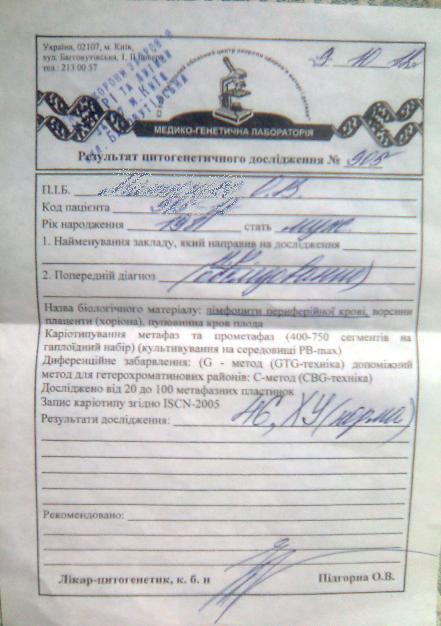 Україна, 02107, м. Київ,
вул. Багговутівська, 1, ІІ поверх
тел.: 213 00 57
9. 10
М. КИЇВ
МЕДИКО-ГЕНЕТИЧНА ЛАБОРАТОРІЯ
Результат цитогенетичного дослідження № 905
П.І.Б. С.В.
Код пацієнта
Рік народження стать муж
1. Найменування закладу, який направив на дослідження
2. Попередній діагноз
Назва біологічного матеріалу: лімфоцити периферійної крові, ворсини
плаценти (хоріона), пуповинна кров плода
Каріотипування метафаз та прометафаз (400-750 сегментів на
гаплоїдний набір) (культивування на середовищі PB-max)
Диференційне забарвлення: (G - метод (GTG-техніка) допоміжний
метод для гетерохроматинових районів: С-метод (CBG-техніка)
Досліджено від 20 до 100 метафазних пластинок
Запис каріотипу згідно ISCN-2005
Результати дослідження: 46, ХУ (норма)
Рекомендовано:
Лікар-цитогенетик, к. б. н Підгорна О.В.